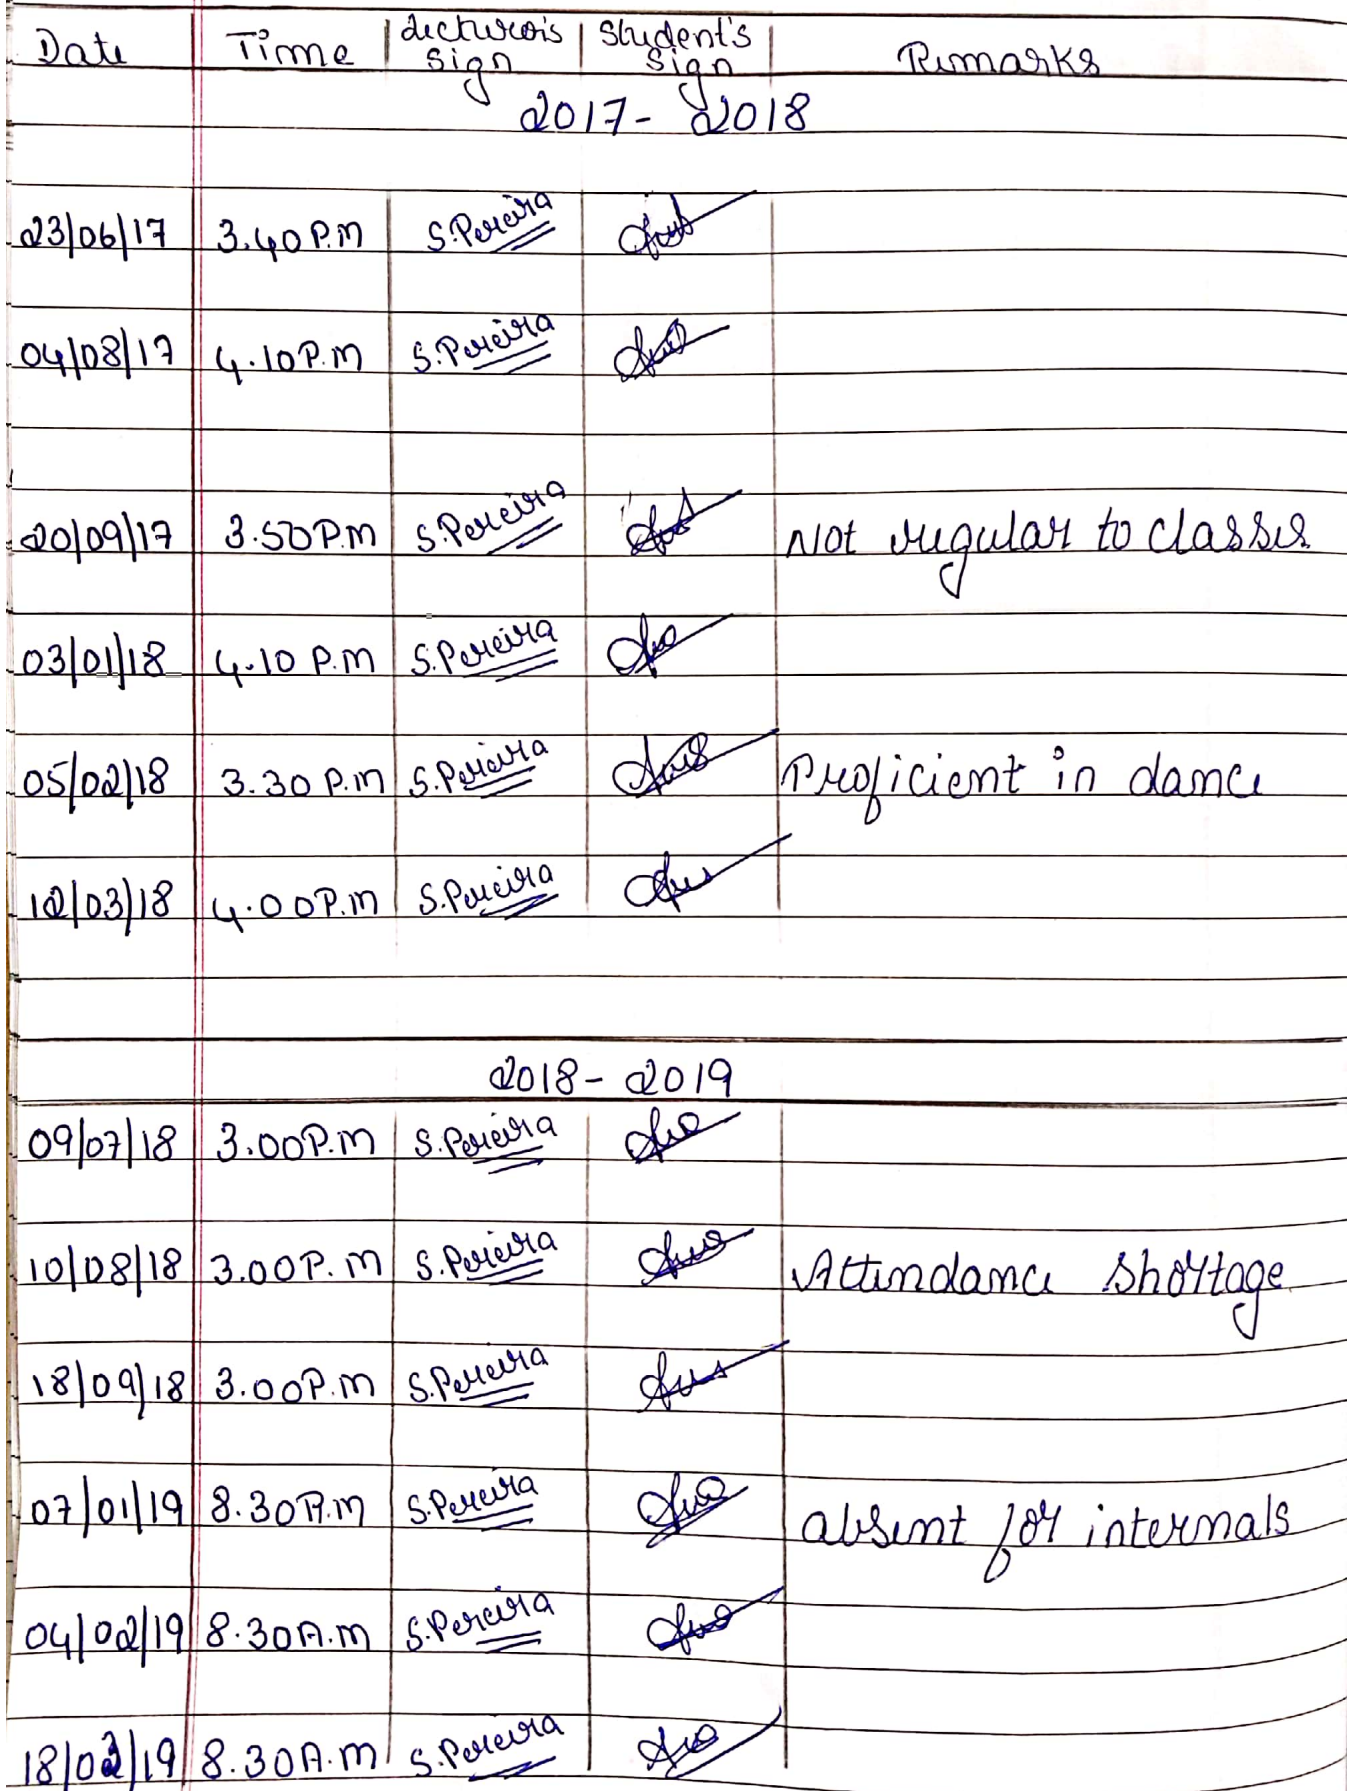 Date Time Lecturer's Sign Student's Sign Remarks
2017-2018
23/06/17 3.40 P.m S.Pereira
04/08/17 4.10 P.m S.Pereira
20/09/17 3.50 P.m S.Pereira Not regular to classes
03/01/18 4.10 P.m S.Pereira
05/02/18 3.30 P.m S.Pereira Proficient in dance
12/03/18 4.00 P.m S.Pereira
2018-2019
09/07/18 3.00 P.m S.Pereira
10/08/18 3.00 P.m S.Pereira Attendance shortage
18/09/18 3.00 P.m S.Pereira
07/01/19 8.30 A.m S.Pereira absent for internals
04/02/19 8.30 A.m S.Pereira
8.30 A.m S.Pereira